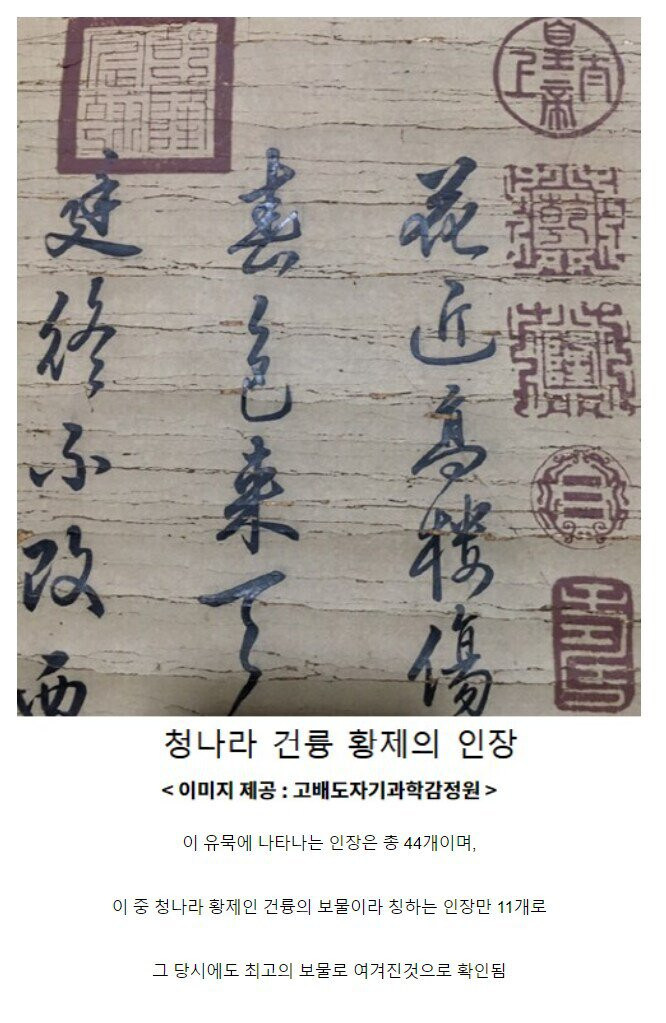 太上皇帝
乾
隆
花近高樓傷
春色來
廷終不改西
청나라 건륭 황제의 인장
< 이미지 제공 : 고배도자기과학감정원 >
이 유묵에 나타나는 인장은 총 44개이며,
이 중 청나라 황제인 건륭의 보물이라 칭하는 인장만 11개로
그 당시에도 최고의 보물로 여겨진것으로 확인됨